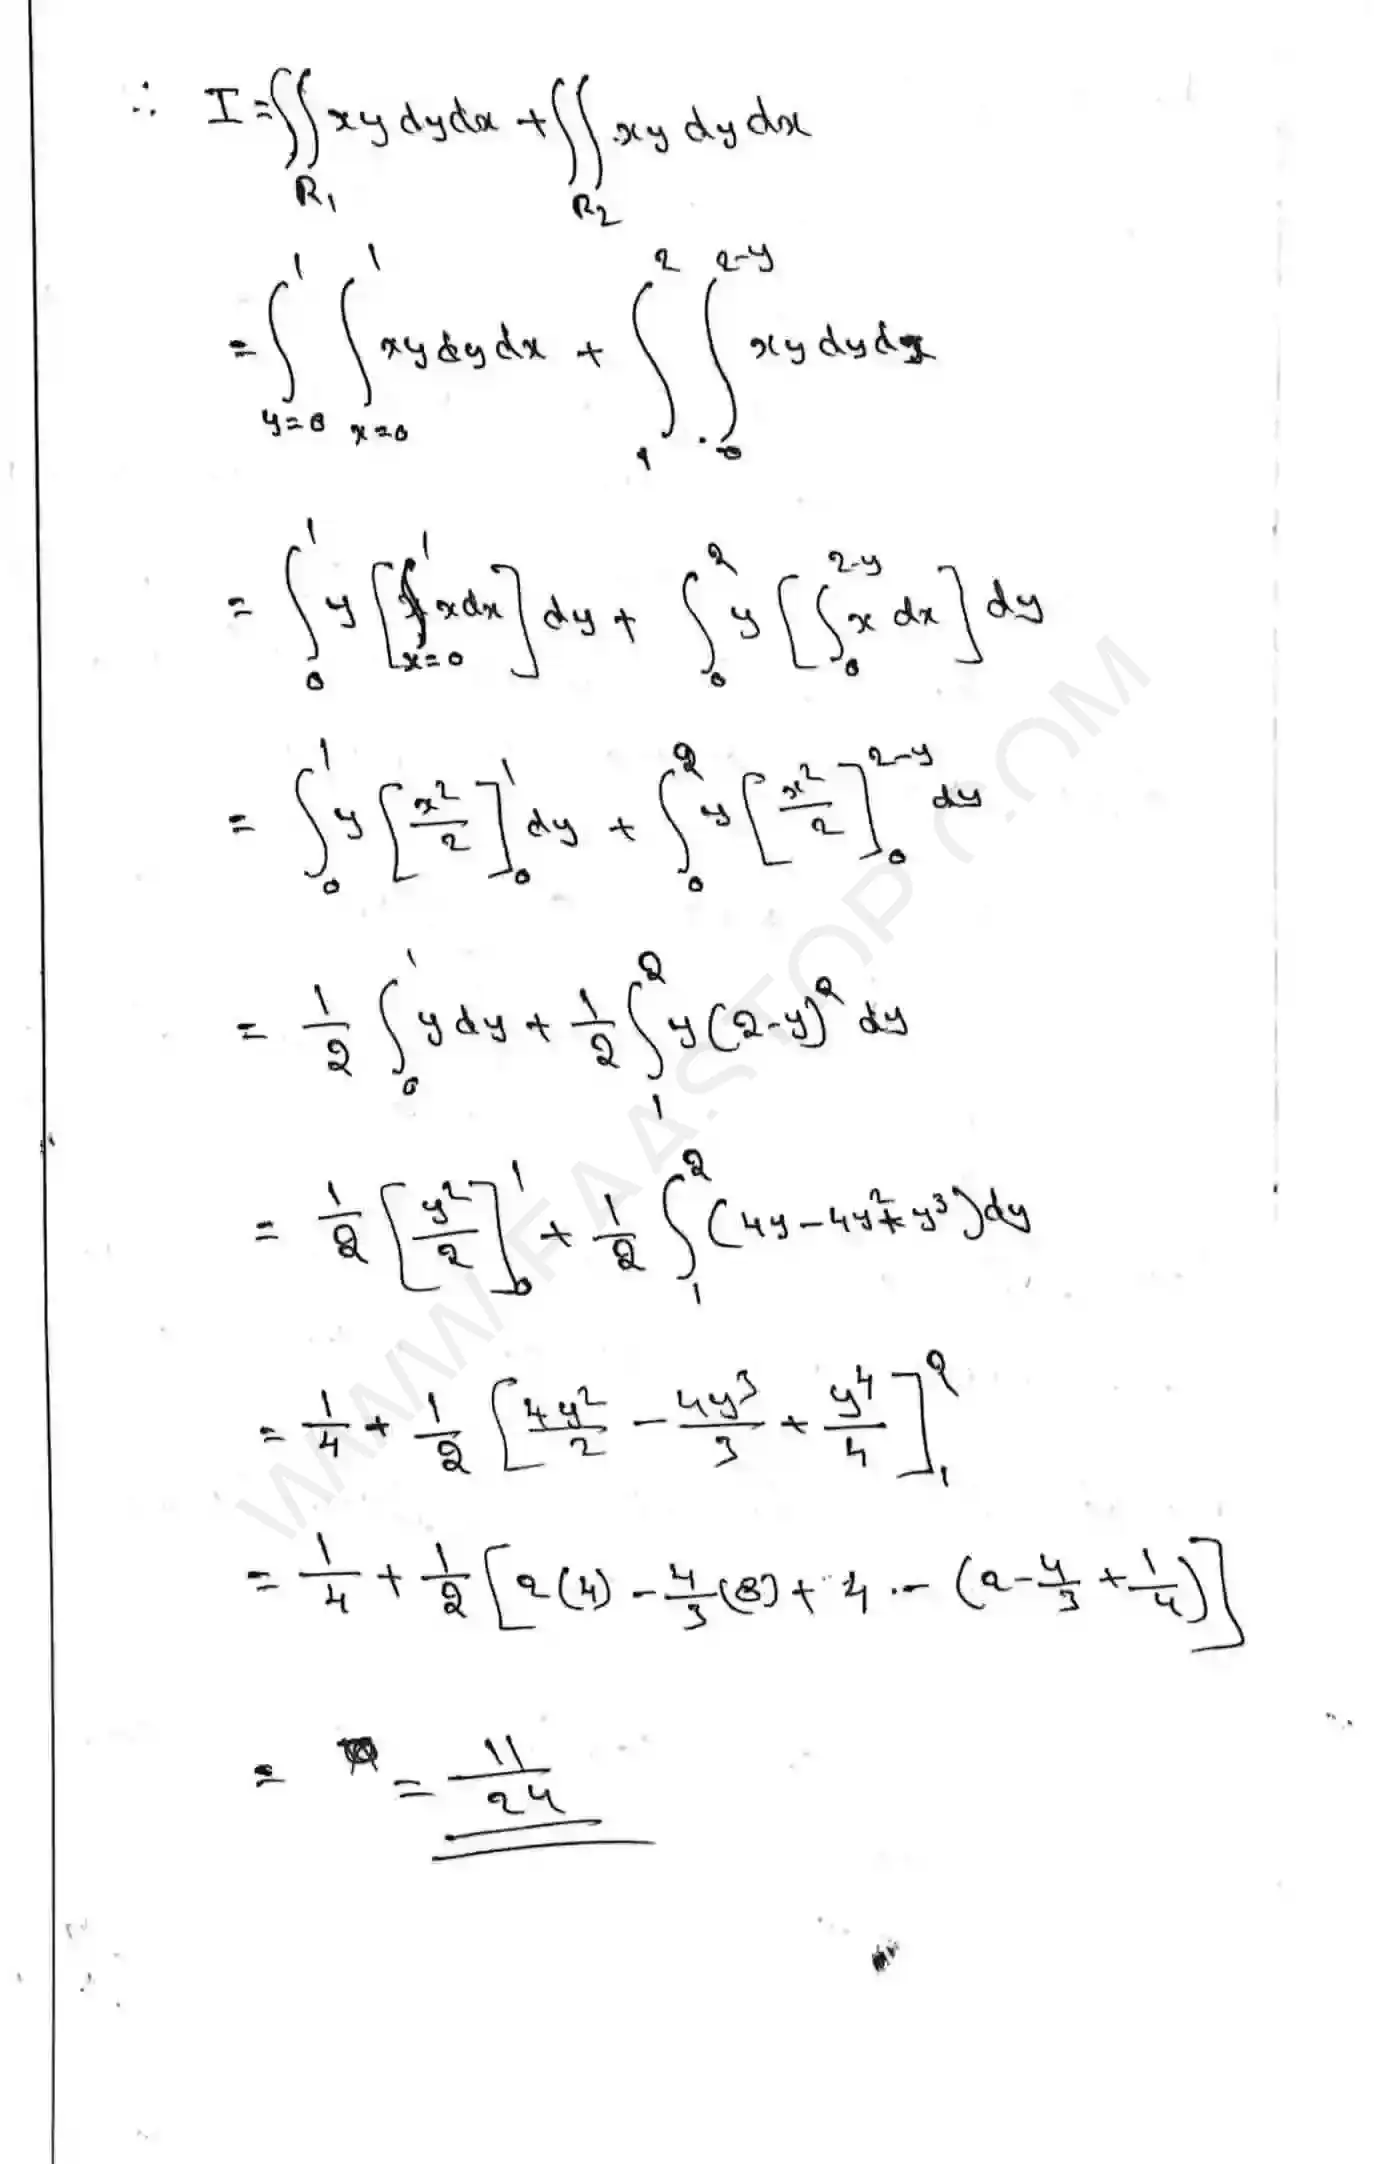 ∴ I = ∬_{R₁} xy dy dx + ∬_{R₂} xy dy dx
= ∫_{y=0}^{1} ∫_{x=0}^{1} xy dy dx + ∫_{1}^{2} ∫_{0}^{2-y} xy dy dx
= ∫_{0}^{1} y [∫_{x=0}^{1} x dx] dy + ∫_{0}^{2} y [∫_{0}^{2-y} x dx] dy
= ∫_{0}^{1} y [x²/2]_{0}^{1} dy + ∫_{0}^{2} y [x²/2]_{0}^{2-y} dy
= 1/2 ∫_{0}^{1} y dy + 1/2 ∫_{1}^{2} y(2-y)² dy
= 1/2 [y²/2]_{0}^{1} + 1/2 ∫_{1}^{2} (4y - 4y² + y³) dy
= 1/4 + 1/2 [4y²/2 - 4y³/3 + y⁴/4]_{1}^{2}
= 1/4 + 1/2 [2(4) - 4/3(8) + 4 - (2 - 4/3 + 1/4)]
= = 11/24
WWW.FAASTOP.COM